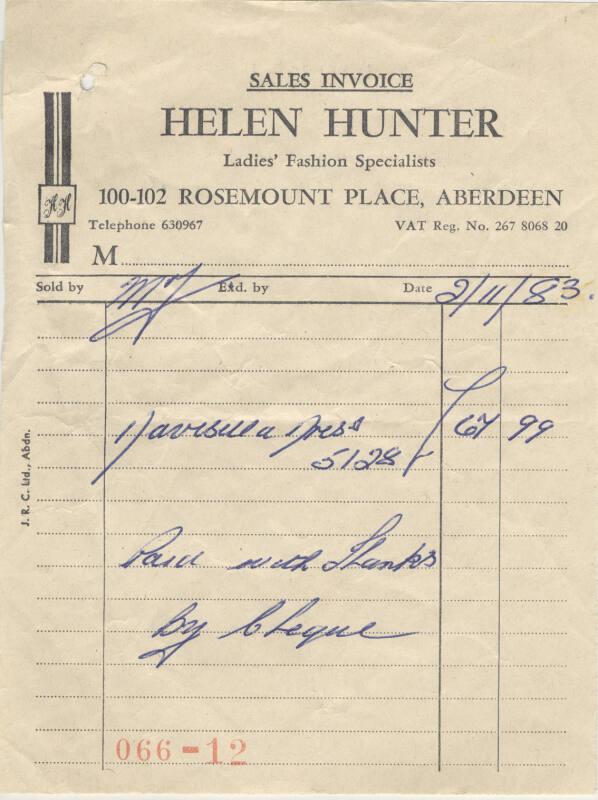 SALES INVOICE
HELEN HUNTER
Ladies' Fashion Specialists
HH
100-102 ROSEMOUNT PLACE, ABERDEEN
Telephone 630967 VAT Reg. No. 267 8068 20
M
Sold by Exd. by Date 2/11/83.
Dress £67 99
5128
Paid with Thanks
By Cheque
J. R. C. Ltd., Abdn.
066-12